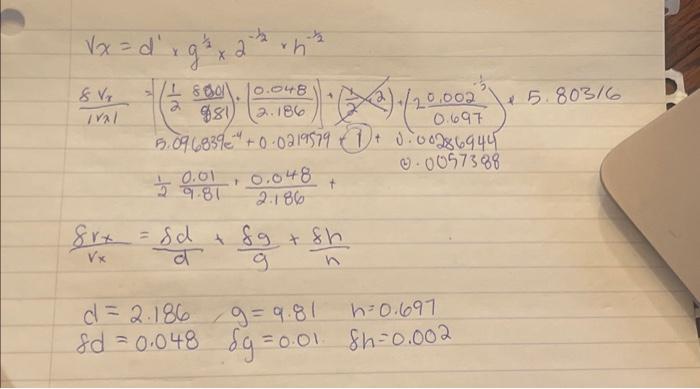 Vx = d¹ × g^½ × 2^-½ × h^-½
δVx/|Vx| = |(½ 0.01/9.81) + |0.048/2.186| + (½ 2) + (2 0.002/0.697)^-½ * 5.80316
5.096839e^-4 + 0.0219579 + 1 + 0.00286944
0.0057388
½ 0.01/9.81 + 0.048/2.186 +
δVx/Vx = δd/d + δg/g + δh/h
d = 2.186 g = 9.81 h = 0.697
δd = 0.048 δg = 0.01 δh = 0.002